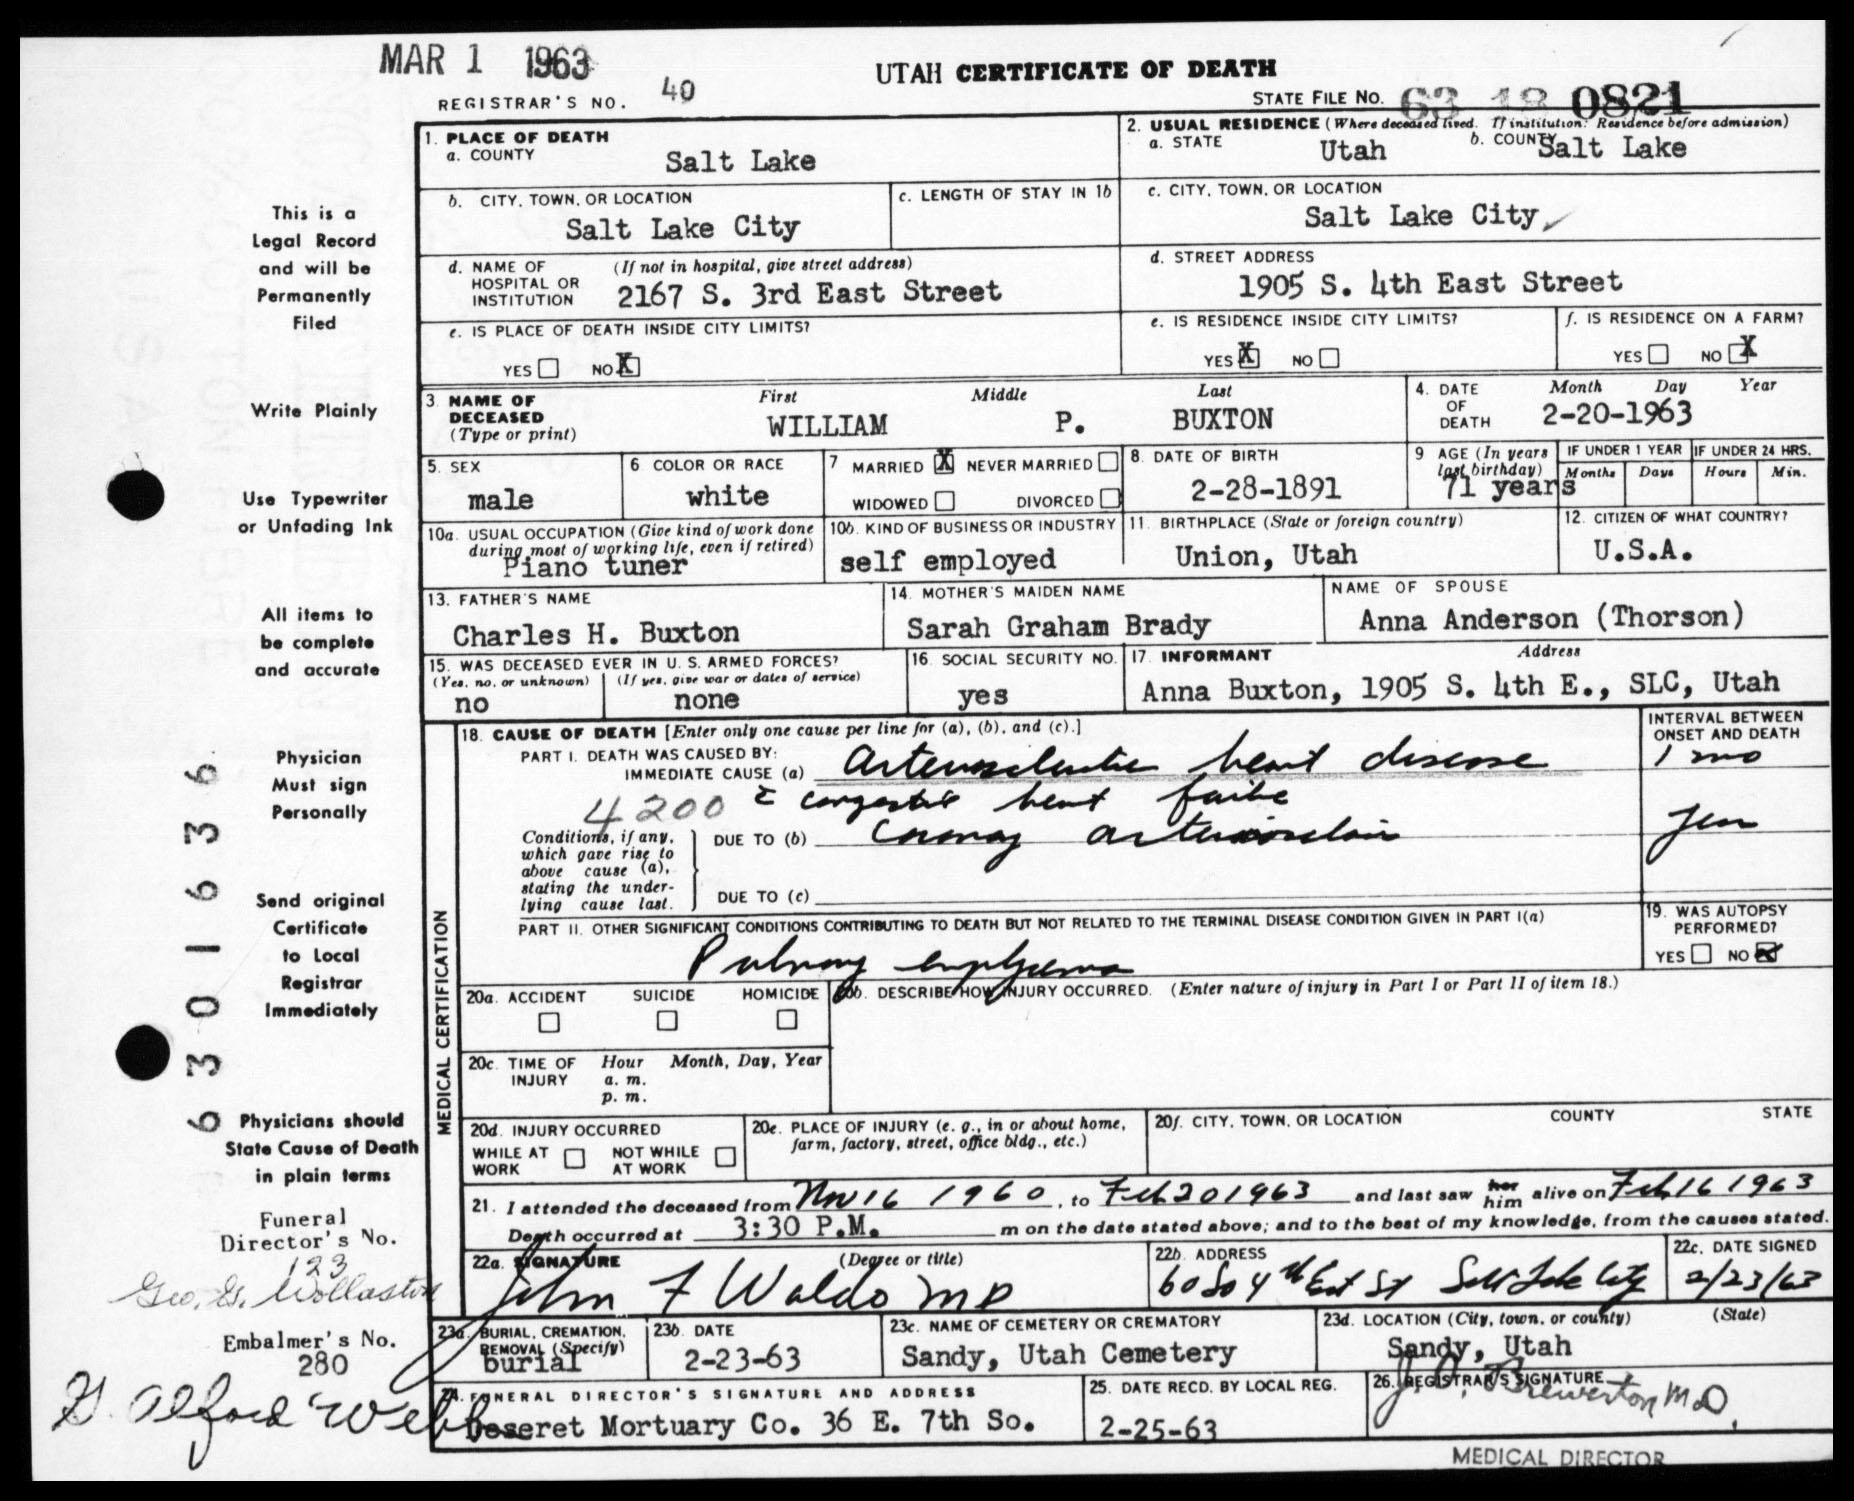 MAR 1 1963
UTAH CERTIFICATE OF DEATH
REGISTRAR'S NO. 40
STATE FILE NO. 63 18 0821
1. PLACE OF DEATH
a. COUNTY
Salt Lake
2. USUAL RESIDENCE (Where deceased lived. If institution: Residence before admission)
a. STATE Utah b. COUNTY Salt Lake
b. CITY, TOWN, OR LOCATION
Salt Lake City
c. LENGTH OF STAY IN 1b
c. CITY, TOWN, OR LOCATION
Salt Lake City
d. NAME OF HOSPITAL OR INSTITUTION (If not in hospital, give street address)
2167 S. 3rd East Street
d. STREET ADDRESS
1905 S. 4th East Street
e. IS PLACE OF DEATH INSIDE CITY LIMITS?
YES NO X
e. IS RESIDENCE INSIDE CITY LIMITS?
YES X NO
f. IS RESIDENCE ON A FARM?
YES NO X
3. NAME OF DECEASED (Type or print)
First Middle Last
WILLIAM P. BUXTON
4. DATE OF DEATH Month Day Year
2-20-1963
5. SEX
male
6 COLOR OR RACE
white
7 MARRIED X NEVER MARRIED
WIDOWED DIVORCED
8. DATE OF BIRTH
2-28-1891
9 AGE (In years last birthday)
71 years
IF UNDER 1 YEAR
Months Days
IF UNDER 24 HRS.
Hours Min.
10a. USUAL OCCUPATION (Give kind of work done during most of working life, even if retired)
Piano tuner
10b. KIND OF BUSINESS OR INDUSTRY
self employed
11. BIRTHPLACE (State or foreign country)
Union, Utah
12. CITIZEN OF WHAT COUNTRY?
U.S.A.
13. FATHER'S NAME
Charles H. Buxton
14. MOTHER'S MAIDEN NAME
Sarah Graham Brady
NAME OF SPOUSE
Anna Anderson (Thorson)
15. WAS DECEASED EVER IN U. S. ARMED FORCES?
(Yes, no, or unknown) (If yes, give war or dates of service)
no none
16. SOCIAL SECURITY NO.
yes
17. INFORMANT Address
Anna Buxton, 1905 S. 4th E., SLC, Utah
MEDICAL CERTIFICATION
18. CAUSE OF DEATH [Enter only one cause per line for (a), (b), and (c).]
INTERVAL BETWEEN ONSET AND DEATH
PART I. DEATH WAS CAUSED BY:
IMMEDIATE CAUSE (a) Arteriosclerotic heart disease 1 mo
4200 c congestive heart failure
Conditions, if any, which gave rise to above cause (a), stating the underlying cause last.
DUE TO (b) Coronary arteriosclerosis
DUE TO (c)
PART II. OTHER SIGNIFICANT CONDITIONS CONTRIBUTING TO DEATH BUT NOT RELATED TO THE TERMINAL DISEASE CONDITION GIVEN IN PART I(a)
Pulmonary emphysema
19. WAS AUTOPSY PERFORMED?
YES NO X
20a. ACCIDENT SUICIDE HOMICIDE
20b. DESCRIBE HOW INJURY OCCURRED. (Enter nature of injury in Part I or Part II of item 18.)
20c. TIME OF INJURY Hour Month, Day, Year
a. m.
p. m.
20d. INJURY OCCURRED
WHILE AT WORK NOT WHILE AT WORK
20e. PLACE OF INJURY (e. g., in or about home, farm, factory, street, office bldg., etc.)
20f. CITY, TOWN, OR LOCATION COUNTY STATE
21. I attended the deceased from Nov 16 1960, to Feb 20 1963 and last saw her him alive on Feb 16 1963
Death occurred at 3:30 P.M. m on the date stated above; and to the best of my knowledge, from the causes stated.
22a. SIGNATURE (Degree or title)
John F Waldo MD
22b. ADDRESS
60 So 4th East St Salt Lake City
22c. DATE SIGNED
2/23/63
23a. BURIAL, CREMATION, REMOVAL (Specify)
burial
23b. DATE
2-23-63
23c. NAME OF CEMETERY OR CREMATORY
Sandy, Utah Cemetery
23d. LOCATION (City, town, or county) (State)
Sandy, Utah
24. FUNERAL DIRECTOR'S SIGNATURE AND ADDRESS
Deseret Mortuary Co. 36 E. 7th So.
25. DATE RECD. BY LOCAL REG.
2-25-63
26. REGISTRAR'S SIGNATURE
Brewerton M.D.
MEDICAL DIRECTOR
This is a
Legal Record
and will be
Permanently
Filed
Write Plainly
Use Typewriter
or Unfading Ink
All items to
be complete
and accurate
Physician
Must sign
Personally
Send original
Certificate
to Local
Registrar
Immediately
Physicians should
State Cause of Death
in plain terms
6 3 0 1 6 3 3 6
Funeral
Director's No.
123
Geo. G. Wollaston
Embalmer's No.
280
G. Alford Webb